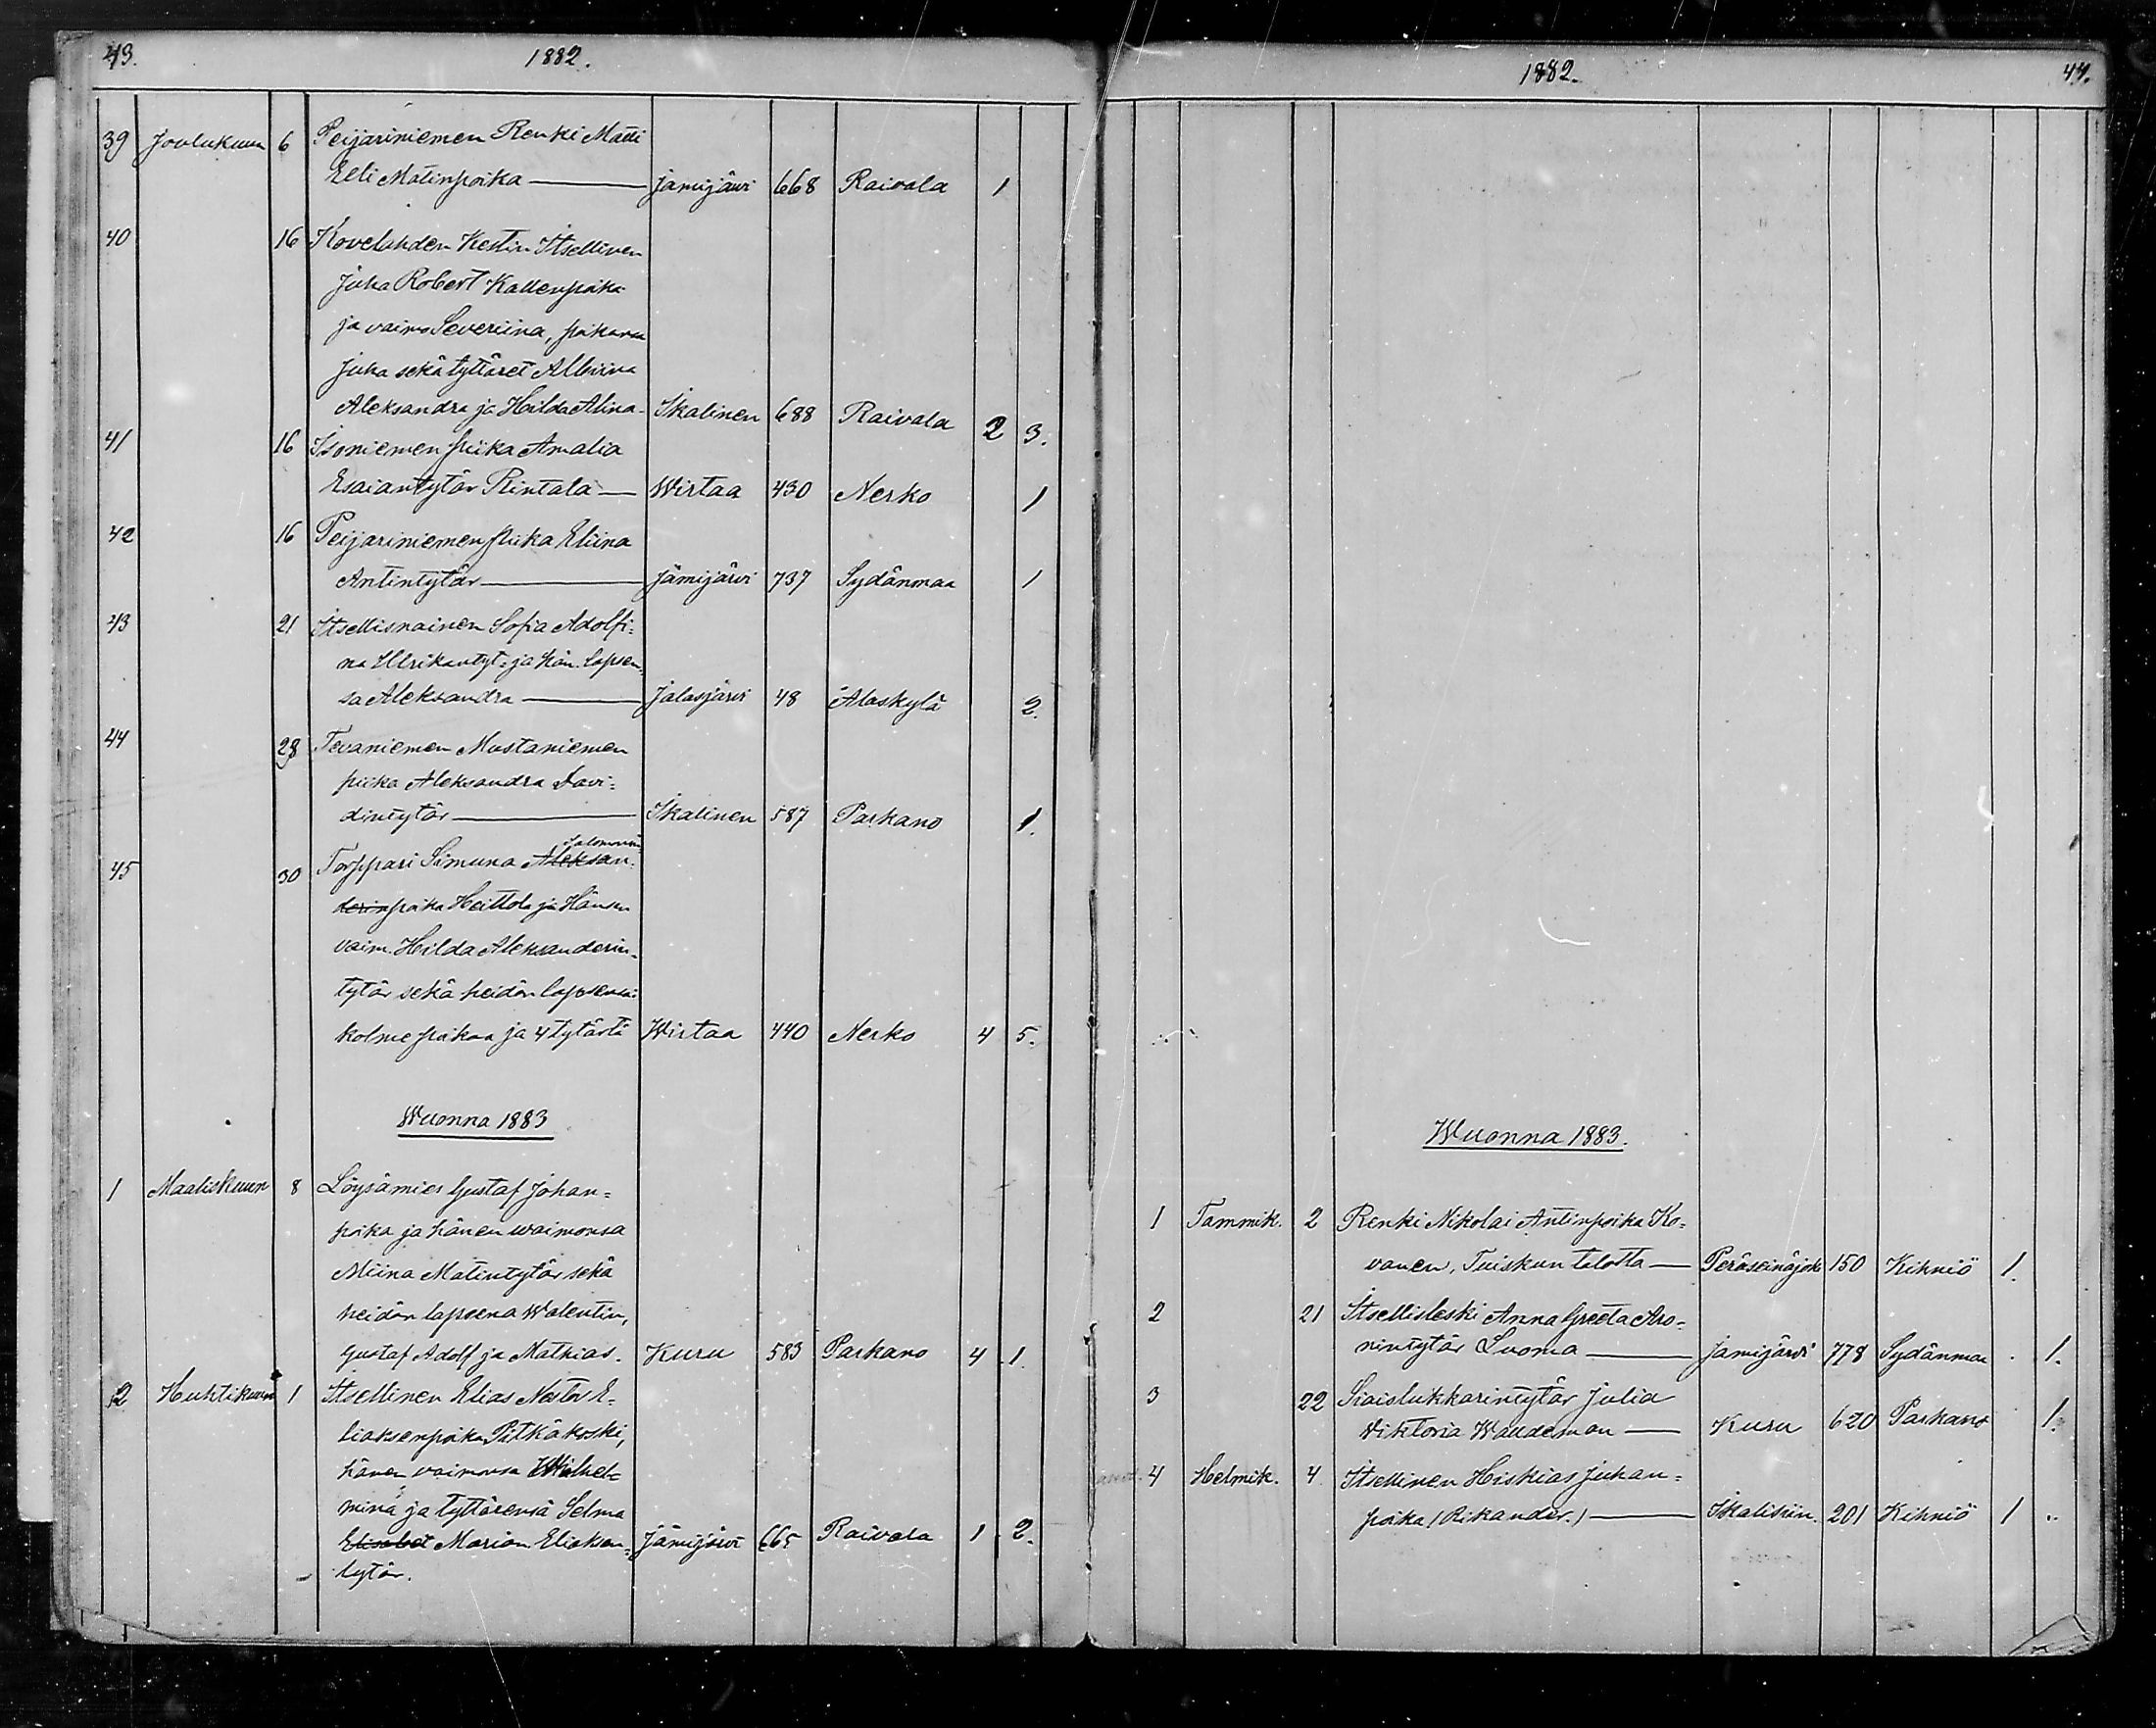 43.
1882.
39 Joulukuun 6 Peijariniemen Renki Matti
Eeli Matinpoika — Jämijärvi 668 Raivala 1
40 16 Kovelahden Kestin Itsellinen
Juha Robert Kallenpoika
ja vaimo Severiina, poikansa
Juha sekä tyttäret Albiina
Aleksandra ja Hilda Alina - Ikalinen 688 Raivala 2 3.
41 16 Isoniemen piika Amalia
Esaiantytär Rintala — Wirtaa 430 Nerko 1
42 16 Peijariniemen piika Eliina
Antintytär — Jämijärvi 737 Sydänmaa 1
43 21 Itsellisnainen Sofia Adolfi=
na Ulrikantyt. ja hän. lapsen=
sa Aleksandra — Jalasjärvi 48 Alaskylä 2.
44 28 Tevaniemen Mustaniemen
piika Aleksandra Davi=
dintytär — Ikalinen 587 Parkano 1.
Salomonin
45 30 Torppari Simuna Aleksan=
derinpoika Heittola ja Hänen
vaim. Hilda Aleksanderin=
tytär sekä heidän lapsensa:
kolme poikaa ja 4 tytärtä Wirtaa 440 Nerko 4 5.
Wuonna 1883
1 Maaliskuun 8 Löysämies Gustaf Johan=
poika ja hänen waimonsa
Miina Matintytär sekä
heidän lapsena Walentin,
Gustaf Adolf ja Mathias. Kuru 583 Parkano 4 1.
2 Huhtikuun 1 Itsellinen Elias Nestor E=
liaksenpoika Pitkäkoski,
hänen vaimonsa Wilhel=
mina ja tyttärensä Selma
Elisabet Marian Eliaksen= Jämijärvi 665 Raivala 1 2.
tytär.
1882.
44.
Wuonna 1883.
1 Tammik. 2 Renki Nikolai Antinpoika Ko=
vanen, Tuiskun talosta — Peräseinäjoki 150 Kihniö 1.
2 21 Itsellisleski Anna Greeta Aro=
nintytär Luoma — Jämijärvi 778 Sydänmaa . 1.
3 22 Siaislukkarintytär Julia
Viktoria Waldeman — Kuru 620 Parkano 1.
4 Helmik. 4 Itsellinen Hiskias Juhan=
poika (Rikander.) — Ikalisiin. 201 Kihniö 1 ..